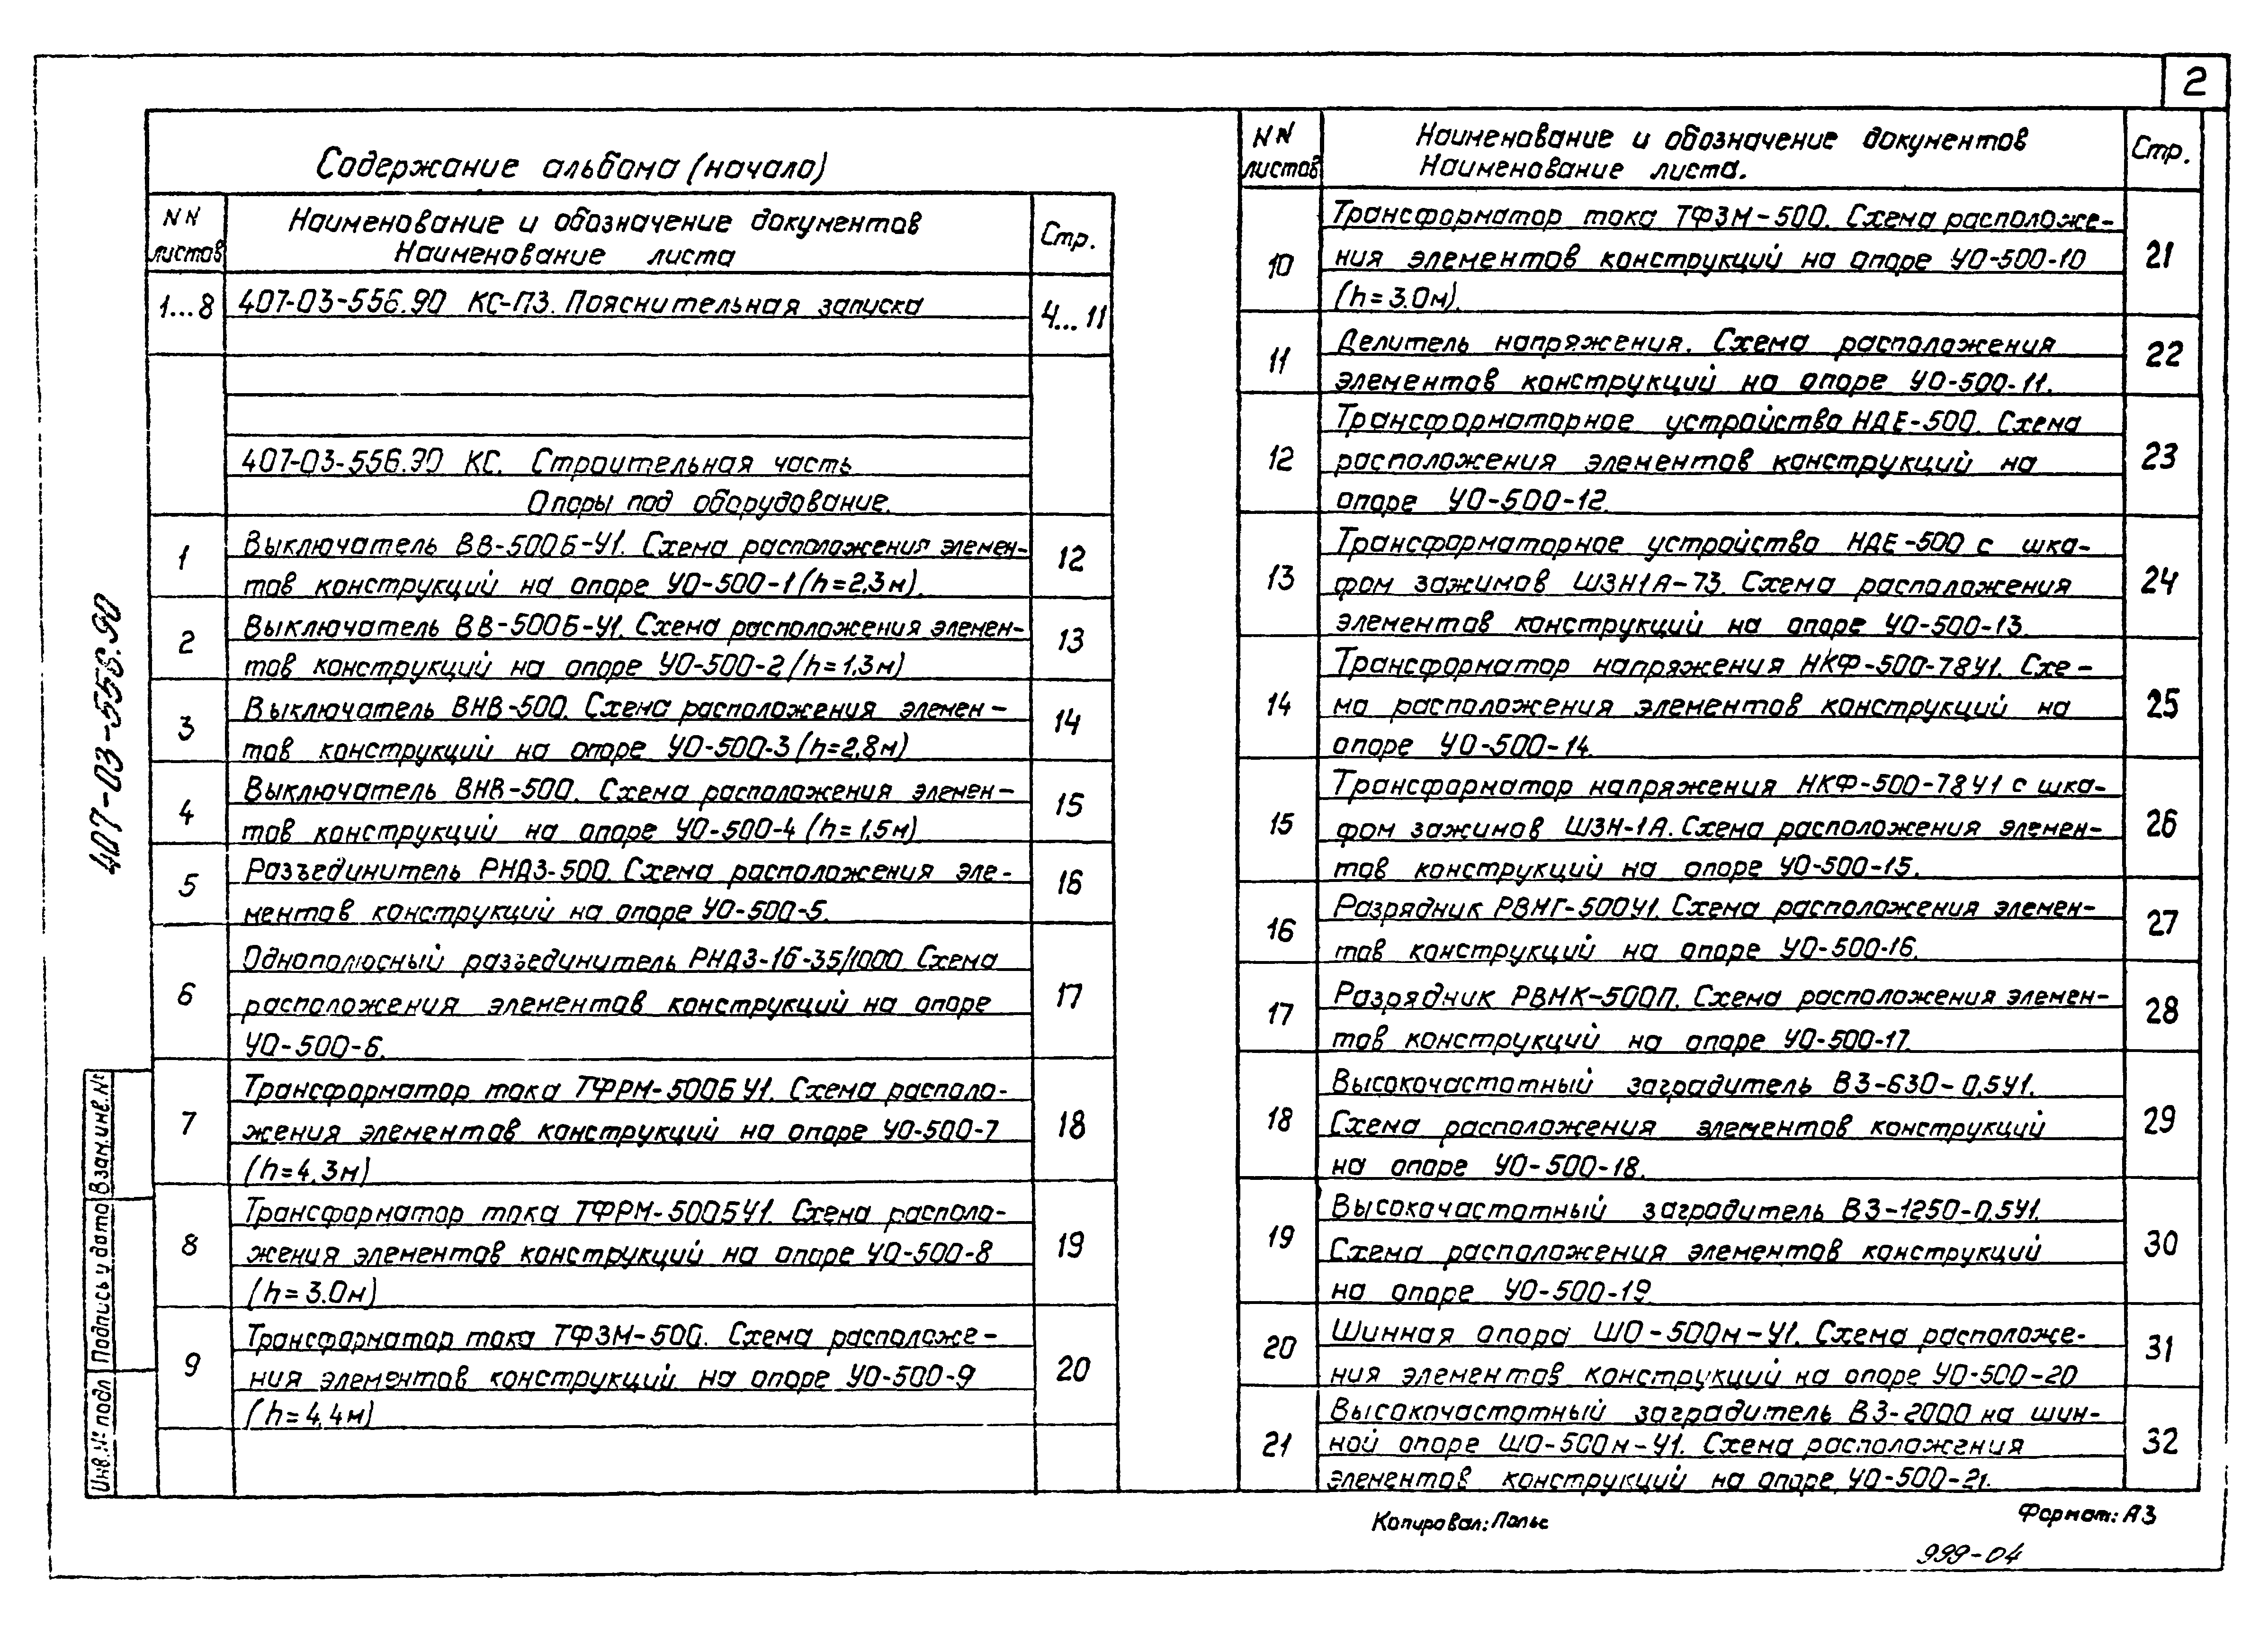 2
Содержание альбома (начало)
NN листов
Наименование и обозначение документов
Наименование листа
Стр.
1...8
407-03-556.90 КС-ПЗ. Пояснительная записка
4...11
407-03-556.90 КС. Строительная часть
Опоры под оборудование.
1
Выключатель ВВ-500Б-У1. Схема расположения элемен-
тов конструкций на опоре УО-500-1 (h=2,3м).
12
2
Выключатель ВВ-500Б-У1. Схема расположения элемен-
тов конструкций на опоре УО-500-2 (h=1,3м)
13
3
Выключатель ВНВ-500. Схема расположения элемен-
тов конструкций на опоре УО-500-3 (h=2,8м)
14
4
Выключатель ВНВ-500. Схема расположения элемен-
тов конструкций на опоре УО-500-4 (h=1,5м)
15
5
Разъединитель РНДЗ-500. Схема расположения эле-
ментов конструкций на опоре УО-500-5.
16
6
Однополюсный разъединитель РНДЗ-1б-35/1000 Схема
расположения элементов конструкций на опоре
УО-500-6.
17
7
Трансформатор тока ТФРМ-500Б У1. Схема располо-
жения элементов конструкций на опоре УО-500-7
(h=4,3м)
18
8
Трансформатор тока ТФРМ-500БУ1. Схема располо-
жения элементов конструкций на опоре УО-500-8
(h=3.0м)
19
9
Трансформатор тока ТФЗМ-500. Схема расположе-
ния элементов конструкций на опоре УО-500-9
(h=4,4м)
20
NN листов
Наименование и обозначение документов
Наименование листа.
Стр.
10
Трансформатор тока ТФЗМ-500. Схема расположе-
ния элементов конструкций на опоре УО-500-10
(h=3.0м).
21
11
Делитель напряжения. Схема расположения
элементов конструкций на опоре УО-500-11.
22
12
Трансформаторное устройство НДЕ-500. Схема
расположения элементов конструкций на
опоре УО-500-12.
23
13
Трансформаторное устройство НДЕ-500 с шка-
фом зажимов ШЗН1А-73. Схема расположения
элементов конструкций на опоре УО-500-13.
24
14
Трансформатор напряжения НКФ-500-78У1. Схе-
ма расположения элементов конструкций на
опоре УО-500-14.
25
15
Трансформатор напряжения НКФ-500-78У1 с шка-
фом зажимов ШЗН-1А. Схема расположения элемен-
тов конструкций на опоре УО-500-15.
26
16
Разрядник РВМГ-500У1. Схема расположения элемен-
тов конструкций на опоре УО-500-16.
27
17
Разрядник РВМК-500П. Схема расположения элемен-
тов конструкций на опоре УО-500-17.
28
18
Высокочастотный заградитель ВЗ-630-0,5У1.
Схема расположения элементов конструкций
на опоре УО-500-18.
29
19
Высокочастотный заградитель ВЗ-1250-0,5У1.
Схема расположения элементов конструкций
на опоре УО-500-19
30
20
Шинная опора ШО-500м-У1. Схема расположе-
ния элементов конструкций на опоре УО-500-20
31
21
Высокочастотный заградитель ВЗ-2000 на шин-
ной опоре ШО-500м-У1. Схема расположения
элементов конструкций на опоре УО-500-21.
32
407-03-556.90
Инв.№ подл
Подпись и дата
Взам.инв.№
Копировал: Польс
Формат: А3
999-04